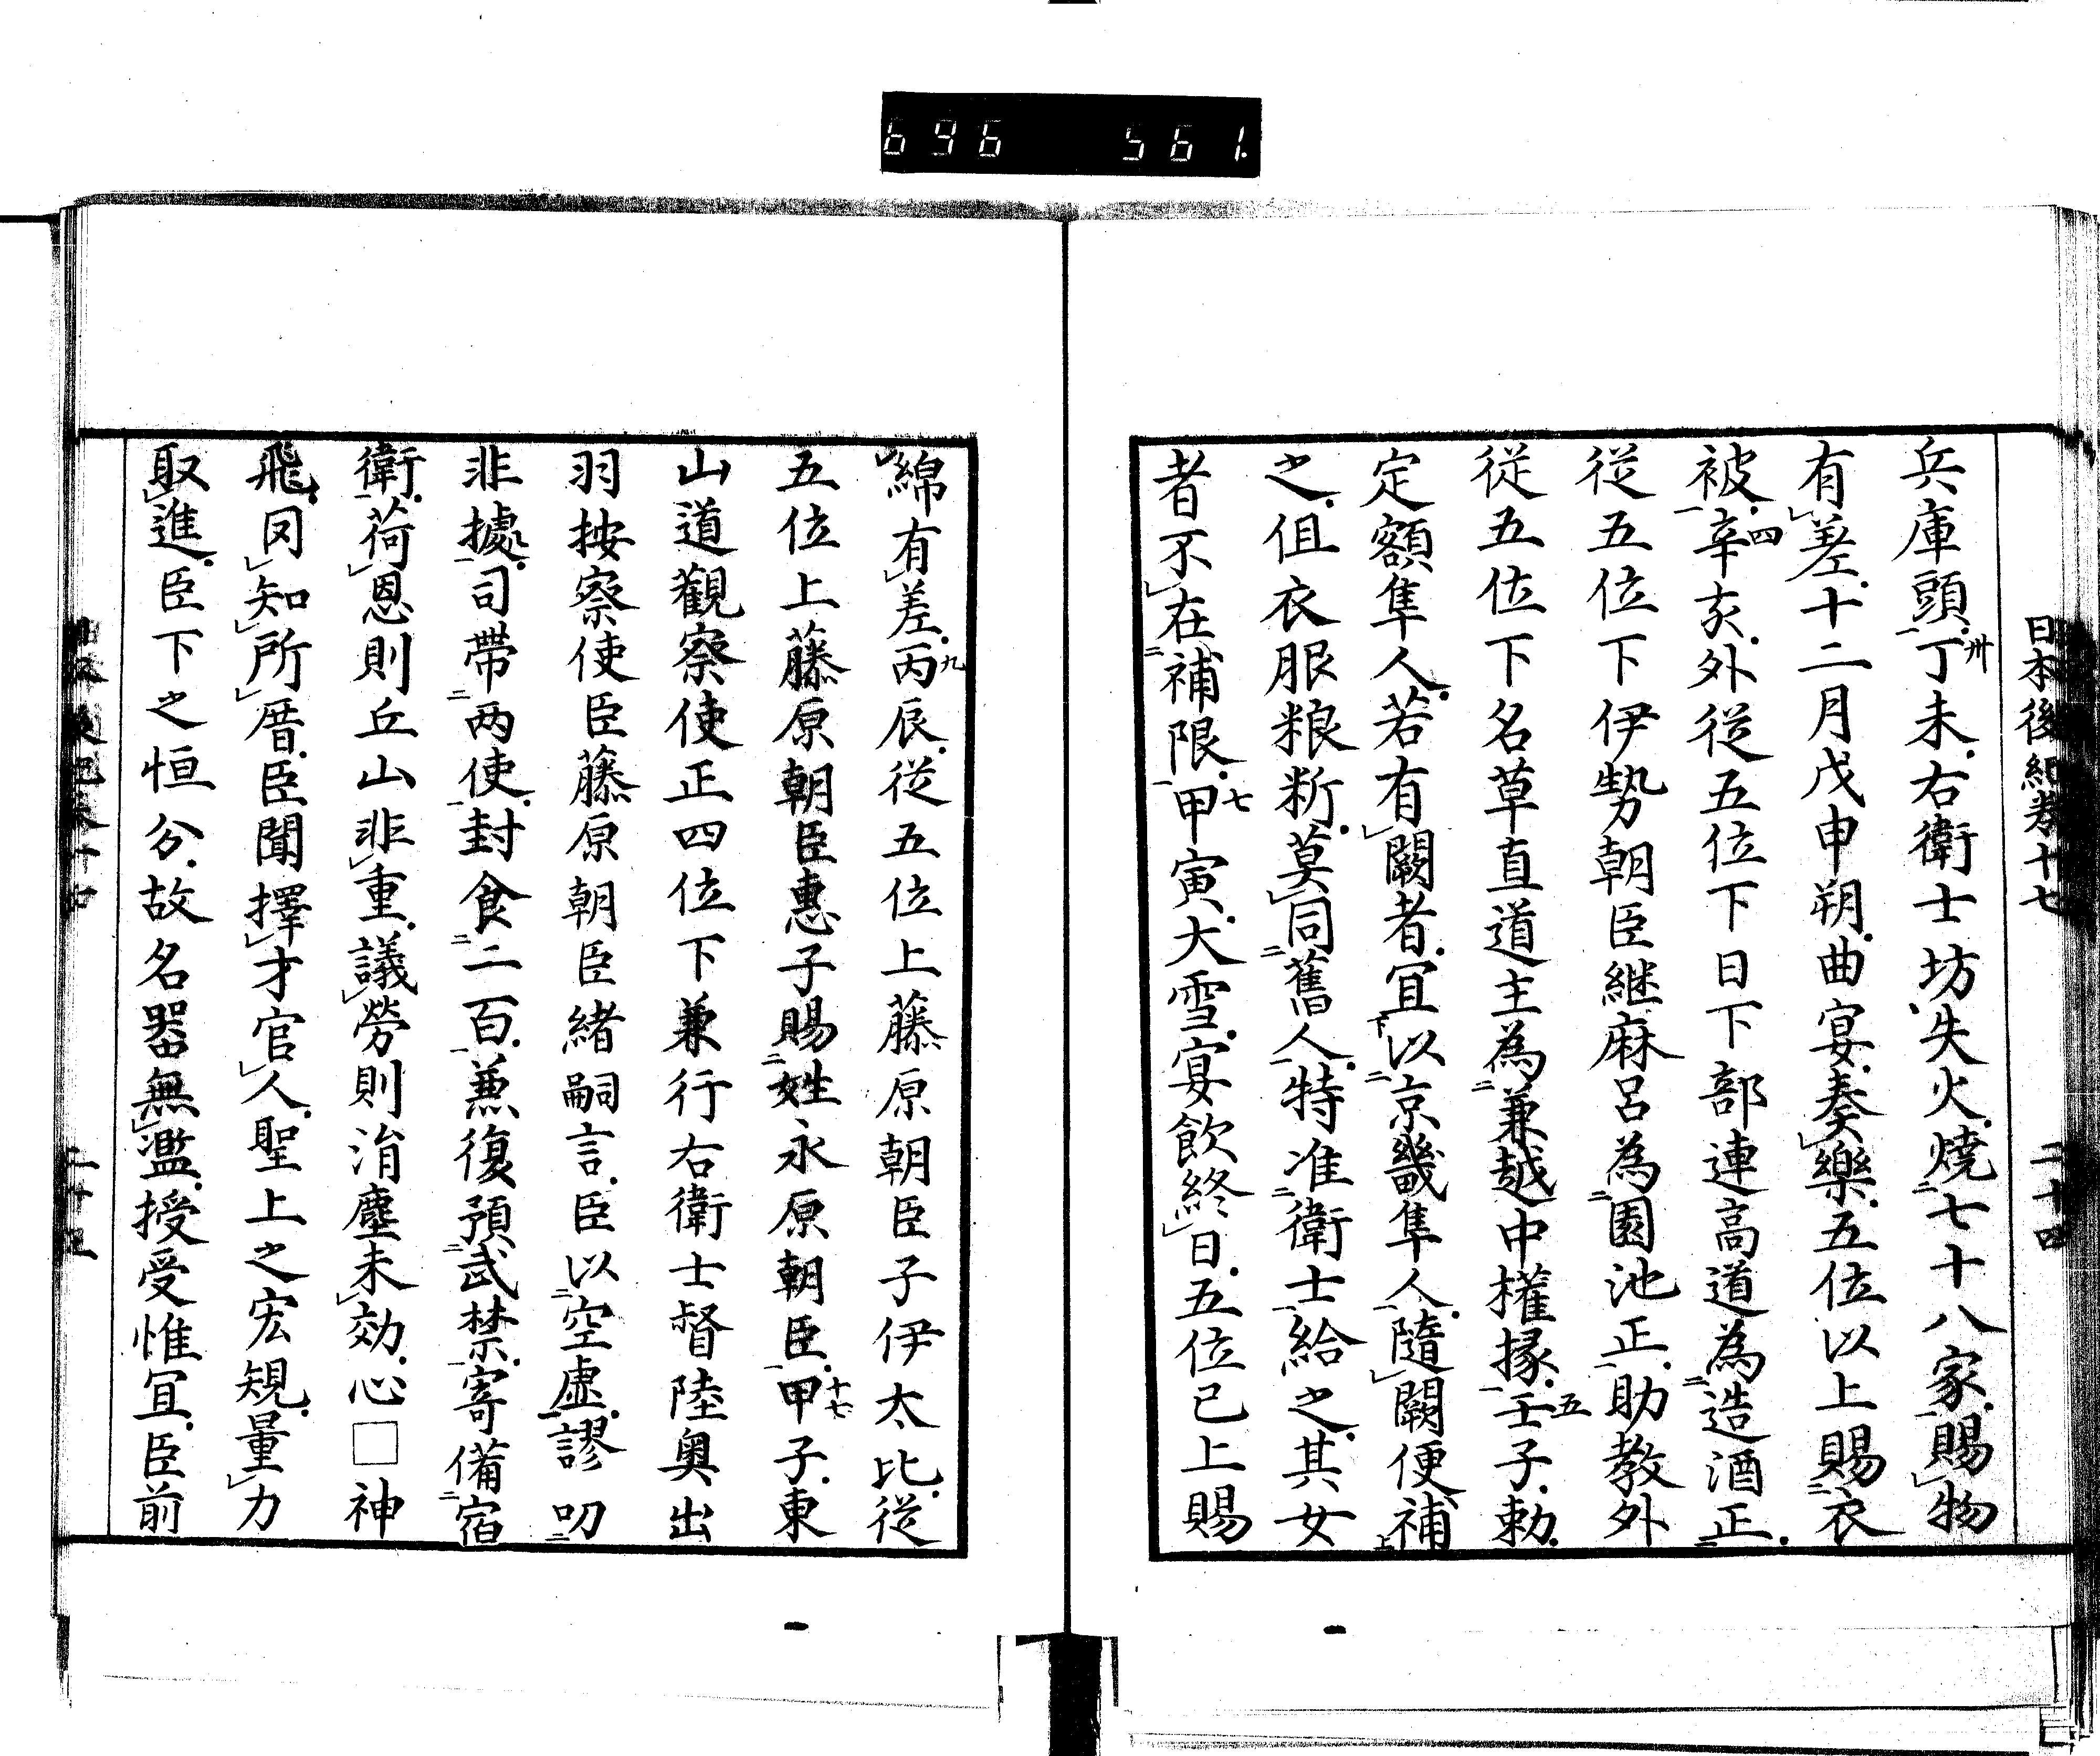 696 561.
日本後紀卷十七 二十四
兵庫頭丁未卅右衛士坊失火燒七十八家賜物
有差十二月戊申朔曲宴奏樂五位以上賜衣
被辛亥四外從五位下日下部連高道為造酒正
從五位下伊勢朝臣継麻呂為園池正助教外
從五位下名草直道主為兼越中權掾壬子五勅
定額隼人若有闕者宜以京畿隼人隨闕便補
之但衣服粮断莫同舊人特准衛士給之其女
者不在補限甲寅七大雪宴飲終日五位已上賜
綿有差丙辰九從五位上藤原朝臣子伊太比從
五位上藤原朝臣惠子賜姓永原朝臣甲子十七東
山道觀察使正四位下兼行右衛士督陸奥出
羽按察使臣藤原朝臣緒嗣言臣以空虛謬叨
非據司帶两使封食二百兼復預武禁寄備宿
衛荷恩則丘山非重議勞則涓塵未効心□神
飛罔知所厝臣聞擇才官人聖上之宏規量力
取進臣下之恒分故名器無濫授受惟宜臣前